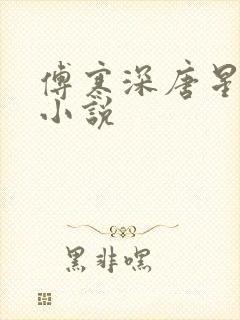 傅寒深唐星
小说
黑非嘿